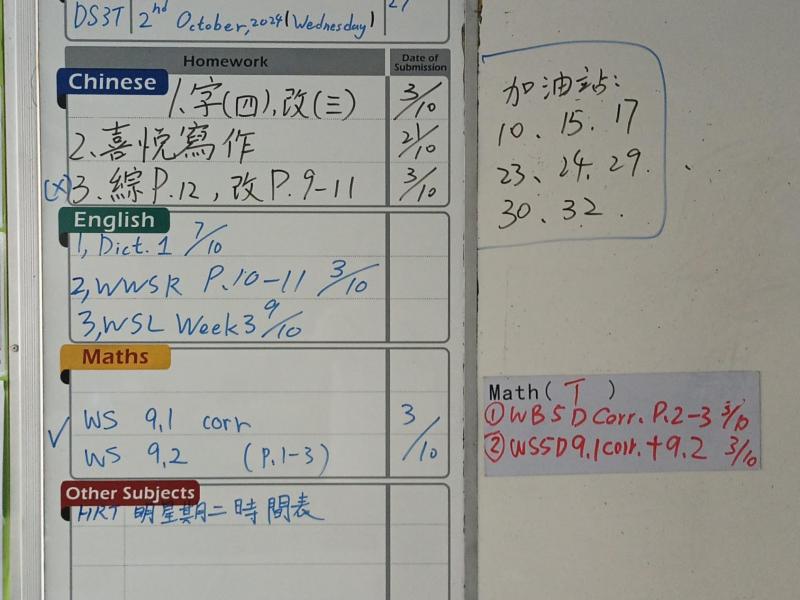 DS3T 2nd October, 2024 (Wednesday)
Homework Date of Submission
Chinese
1. 字(四), 改(三) 3/10
2、喜悅寫作 21/10
(x) 3、綜P.12, 改P.9-11 3/10
English
1, Dict. 1 7/10
2, WWSR P.10-11 3/10
3, WSL Week3 9/10
Maths
✓ WS 9.1 corr 3/10
WS 9.2 (P.1-3)
Other Subjects
HRT 明星期二時間表
加油站:
10、15、17
23、24、29.
30、32.
Math( T )
① WB5D Corr. P.2-3 3/10
② WS5D9.1corr.+9.2 3/10